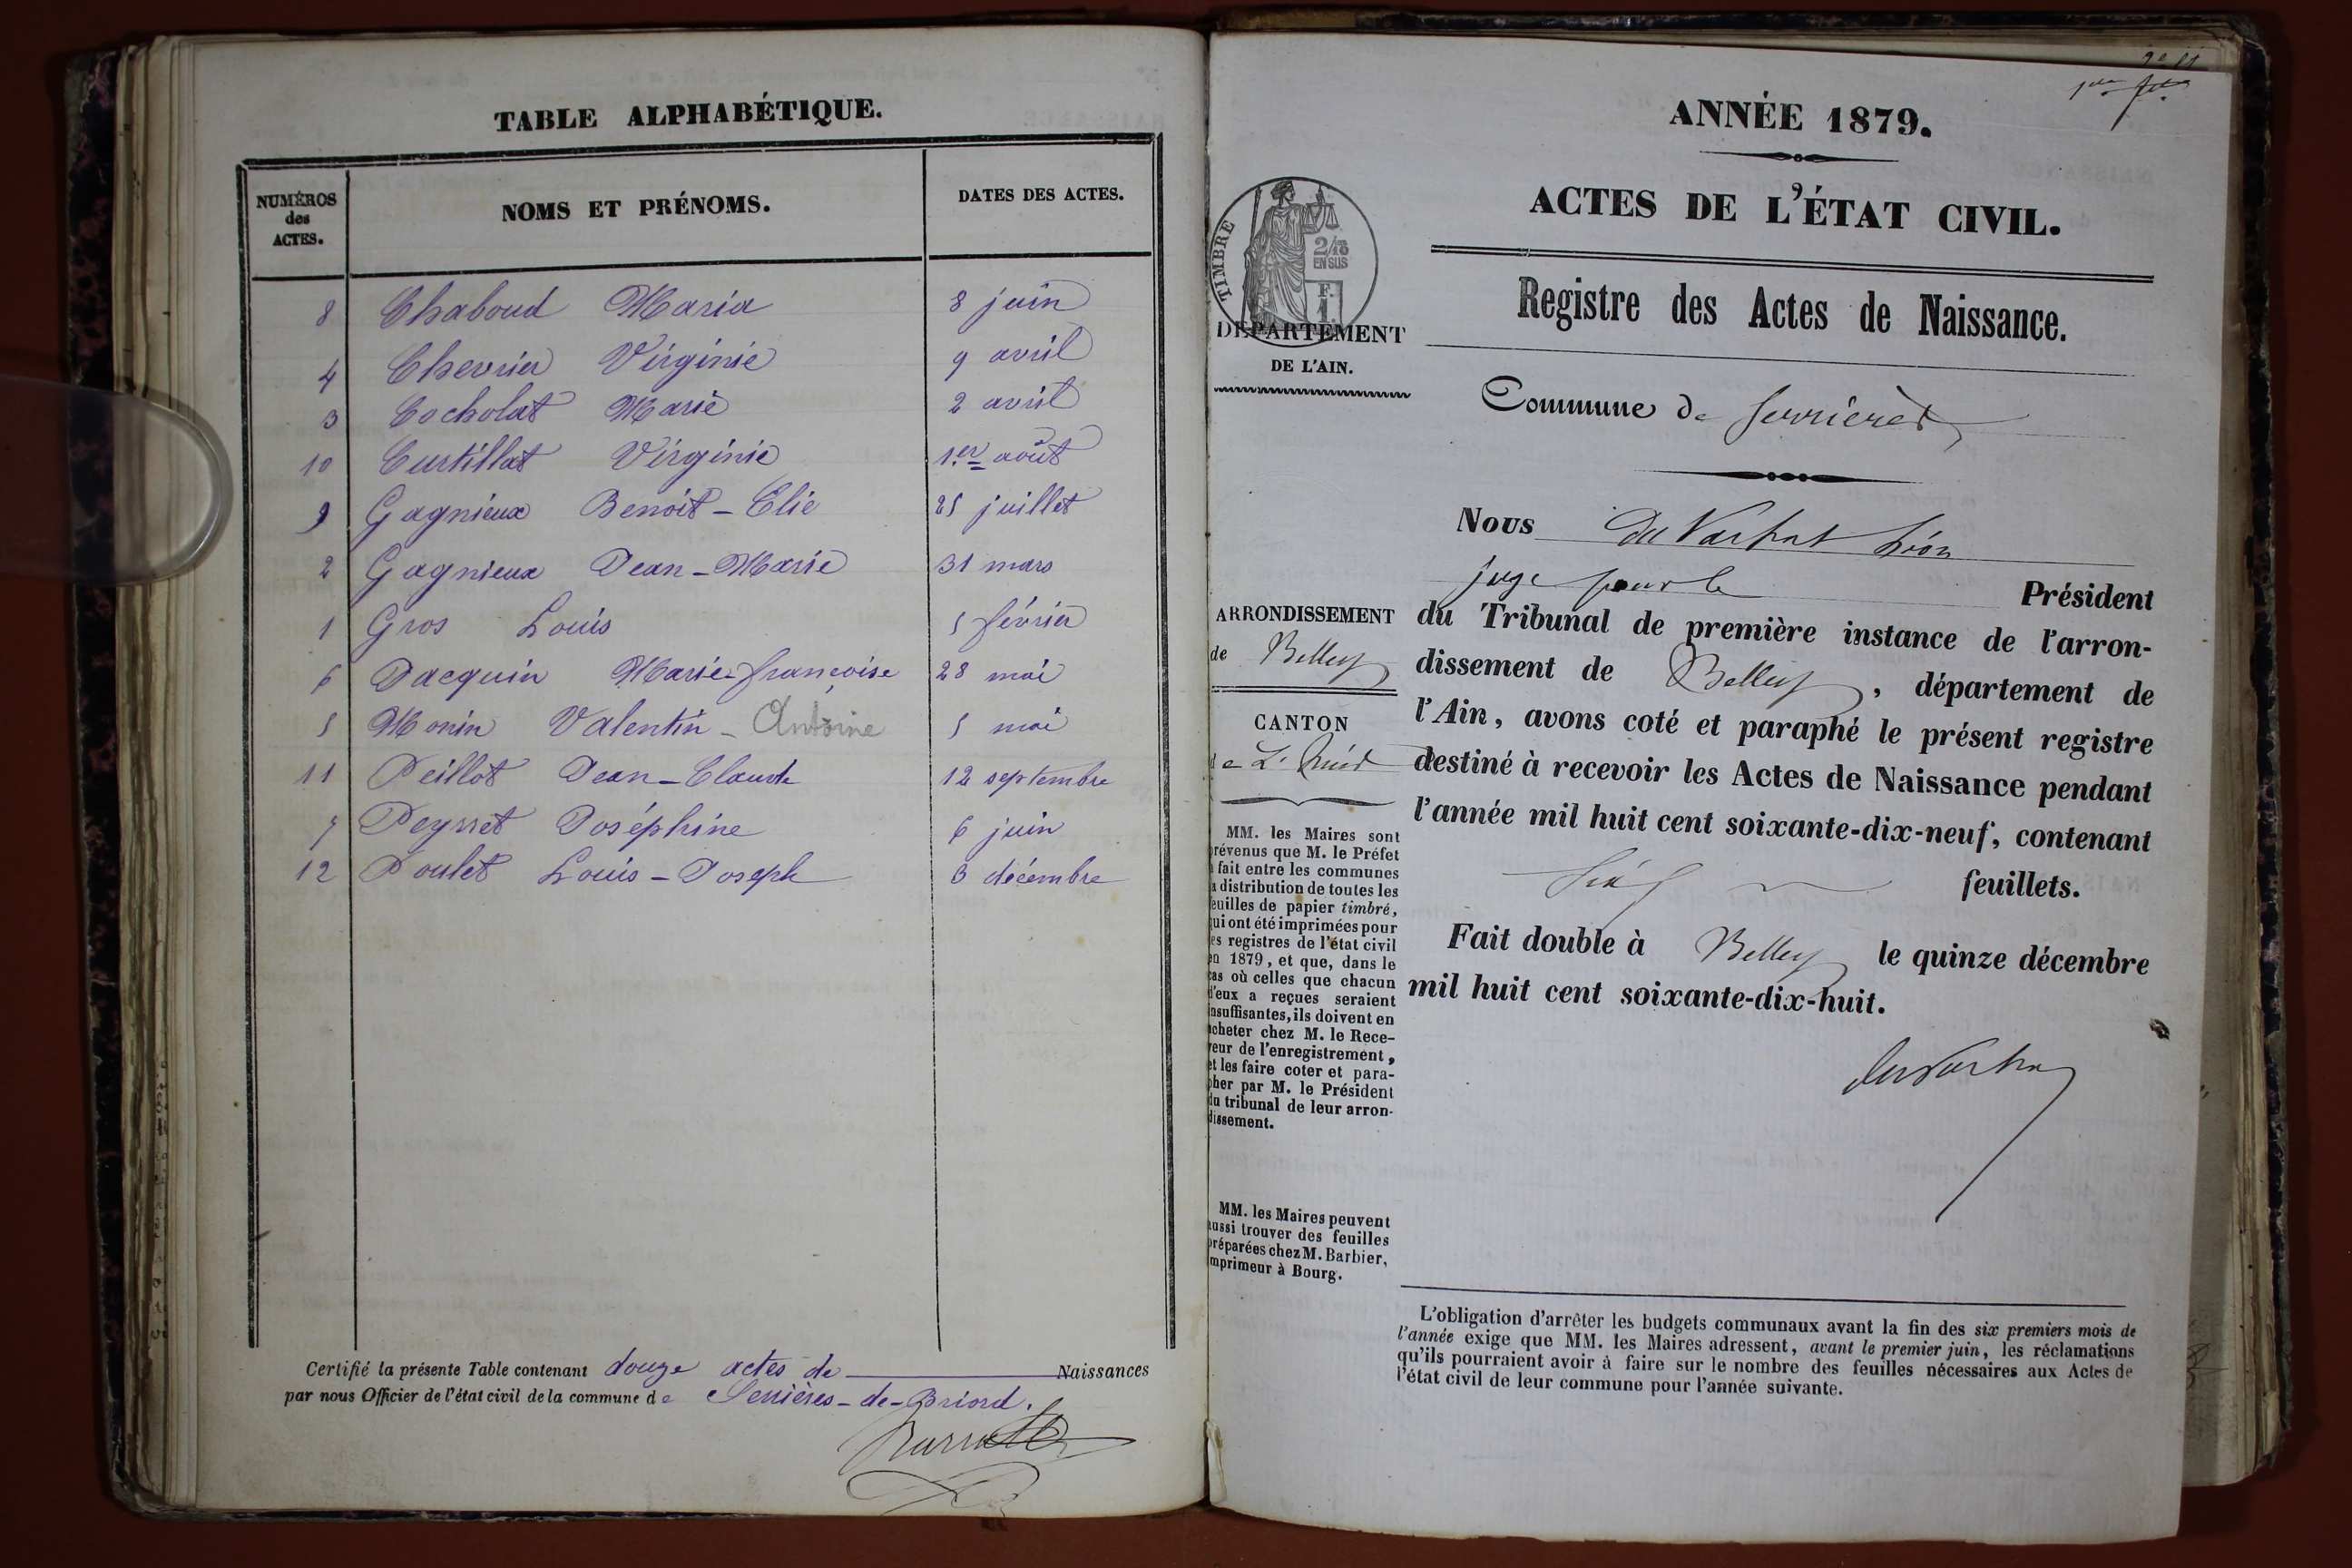 TABLE ALPHABÉTIQUE.
NUMÉROS
des
ACTES.
NOMS ET PRÉNOMS.
DATES DES ACTES.
8 Chaboud Maria 8 juin
4 Chevrier Virginie 9 avril
3 Cocholat Marie 2 avril
10 Curtillat Virginie 1er août
9 Gagnieux Benoit-Elie 25 juillet
2 Gagnieux Jean-Marie 31 mars
1 Gros Louis 5 février
6 Jacquin Marie-françoise 28 mai
5 Monin Valentin - Antoine 5 mai
11 Peillot Jean-Claude 12 septembre
7 Peysset Joséphine 6 juin
12 Poulet Louis-Joseph 3 décembre
Certifié la présente Table contenant douze actes de Naissances
par nous Officier de l'état civil de la commune de Serrières-de-Briord.
ANNÉE 1879.
ACTES DE L'ÉTAT CIVIL.
TIMBRE
2/10
EN SUS
F.
1.
DÉPARTEMENT
DE L'AIN.
Registre des Actes de Naissance.
Commune de Serrières
Nous Léon
juge pour le Président
du Tribunal de première instance de l'arron-
dissement de Belley, département de
l'Ain, avons coté et paraphé le présent registre
destiné à recevoir les Actes de Naissance pendant
l'année mil huit cent soixante-dix-neuf, contenant
feuillets.
Fait double à Belley le quinze décembre
mil huit cent soixante-dix-huit.
ARRONDISSEMENT
de Belley
CANTON
de
MM. les Maires sont
prévenus que M. le Préfet
a fait entre les communes
la distribution de toutes les
feuilles de papier timbré,
qui ont été imprimées pour
les registres de l'état civil
en 1879, et que, dans le
cas où celles que chacun
d'eux a reçues seraient
insuffisantes, ils doivent en
acheter chez M. le Rece-
veur de l'enregistrement,
et les faire coter et para-
pher par M. le Président
du tribunal de leur arron-
dissement.
MM. les Maires peuvent
aussi trouver des feuilles
préparées chez M. Barbier,
imprimeur à Bourg.
L'obligation d'arrêter les budgets communaux avant la fin des six premiers mois de
l'année exige que MM. les Maires adressent, avant le premier juin, les réclamations
qu'ils pourraient avoir à faire sur le nombre des feuilles nécessaires aux Actes de
l'état civil de leur commune pour l'année suivante.